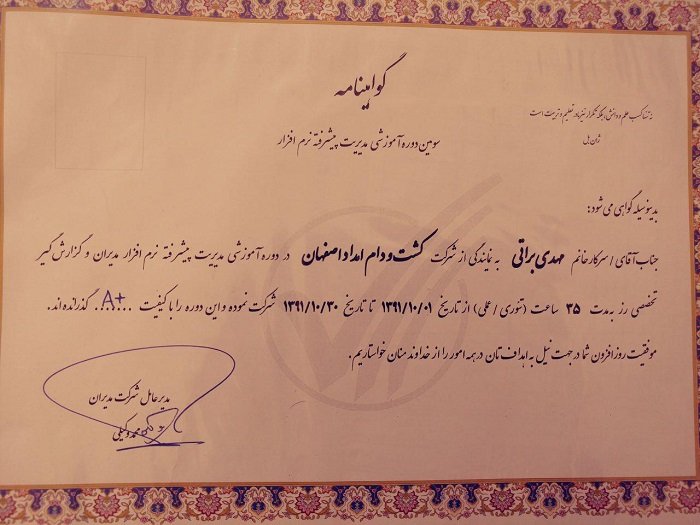 گواهینامه
نه تنها کسب علم و دانش، بلکه تکرار ثمره تعلیم و تربیت است
ژان پل
سومین دوره آموزشی مدیریت پیشرفته نرم افزار
بدینوسیله گواهی می شود:
جناب آقای / سرکار خانم مهدی براقی به نمایندگی از شرکت کشت و دام امداد اصفهان در دوره آموزشی مدیریت پیشرفته نرم افزار مدیران و گزارش گیر
تخصصی رز به مدت ۳۵ ساعت (تئوری / عملی) از تاریخ ۱۳۹۱/۱۰/۰۱ تا تاریخ ۱۳۹۱/۱۰/۳۰ شرکت نموده و این دوره را با کیفیت A+ گذرانده اند.
موفقیت روزافزون شما در جهت نیل به اهداف تان در همه امور را از خداوند منان خواستاریم.
مدیرعامل شرکت مدیران
محمد وکیلی